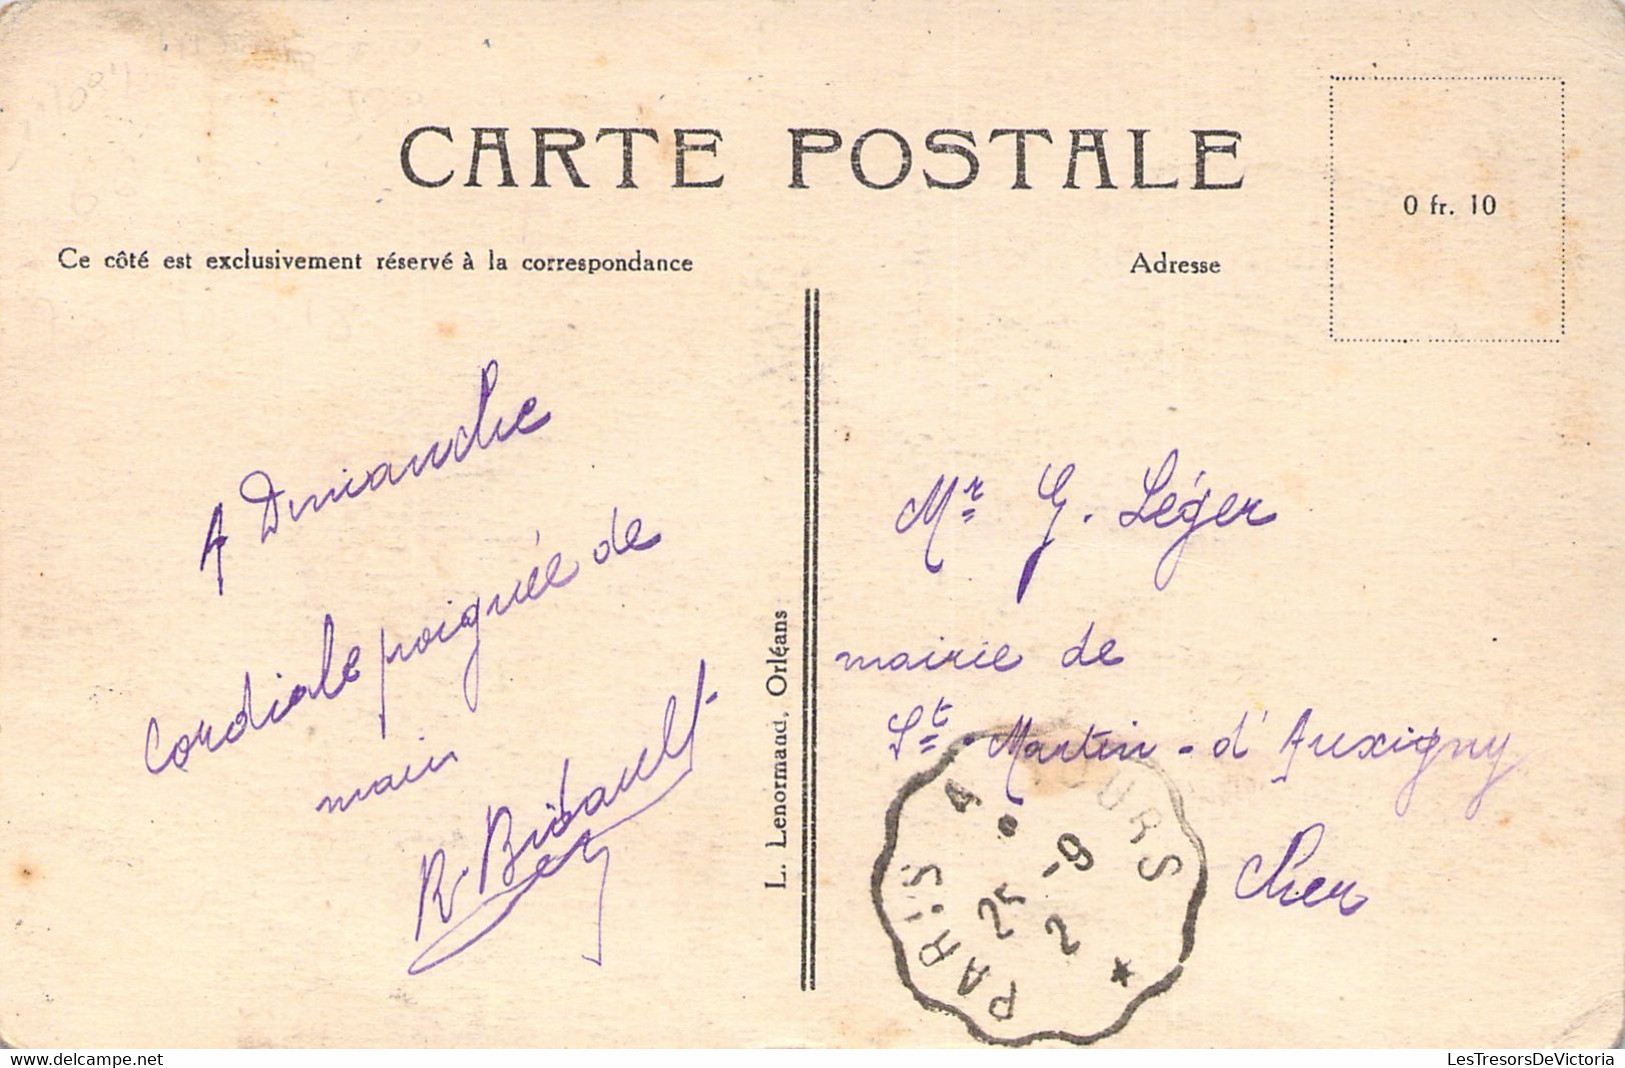 CARTE POSTALE
0 fr. 10
Ce côté est exclusivement réservé à la correspondance
Adresse
A Dimanche
Cordiale poignée de
main
R. Bidault
L. Lenormand, Orléans
Mr G. Léger
mairie de
St. Martin-d'Auxigny
Cher
PARIS A TOURS
25 -9
2
delcampe.net
LesTresorsDeVictoria